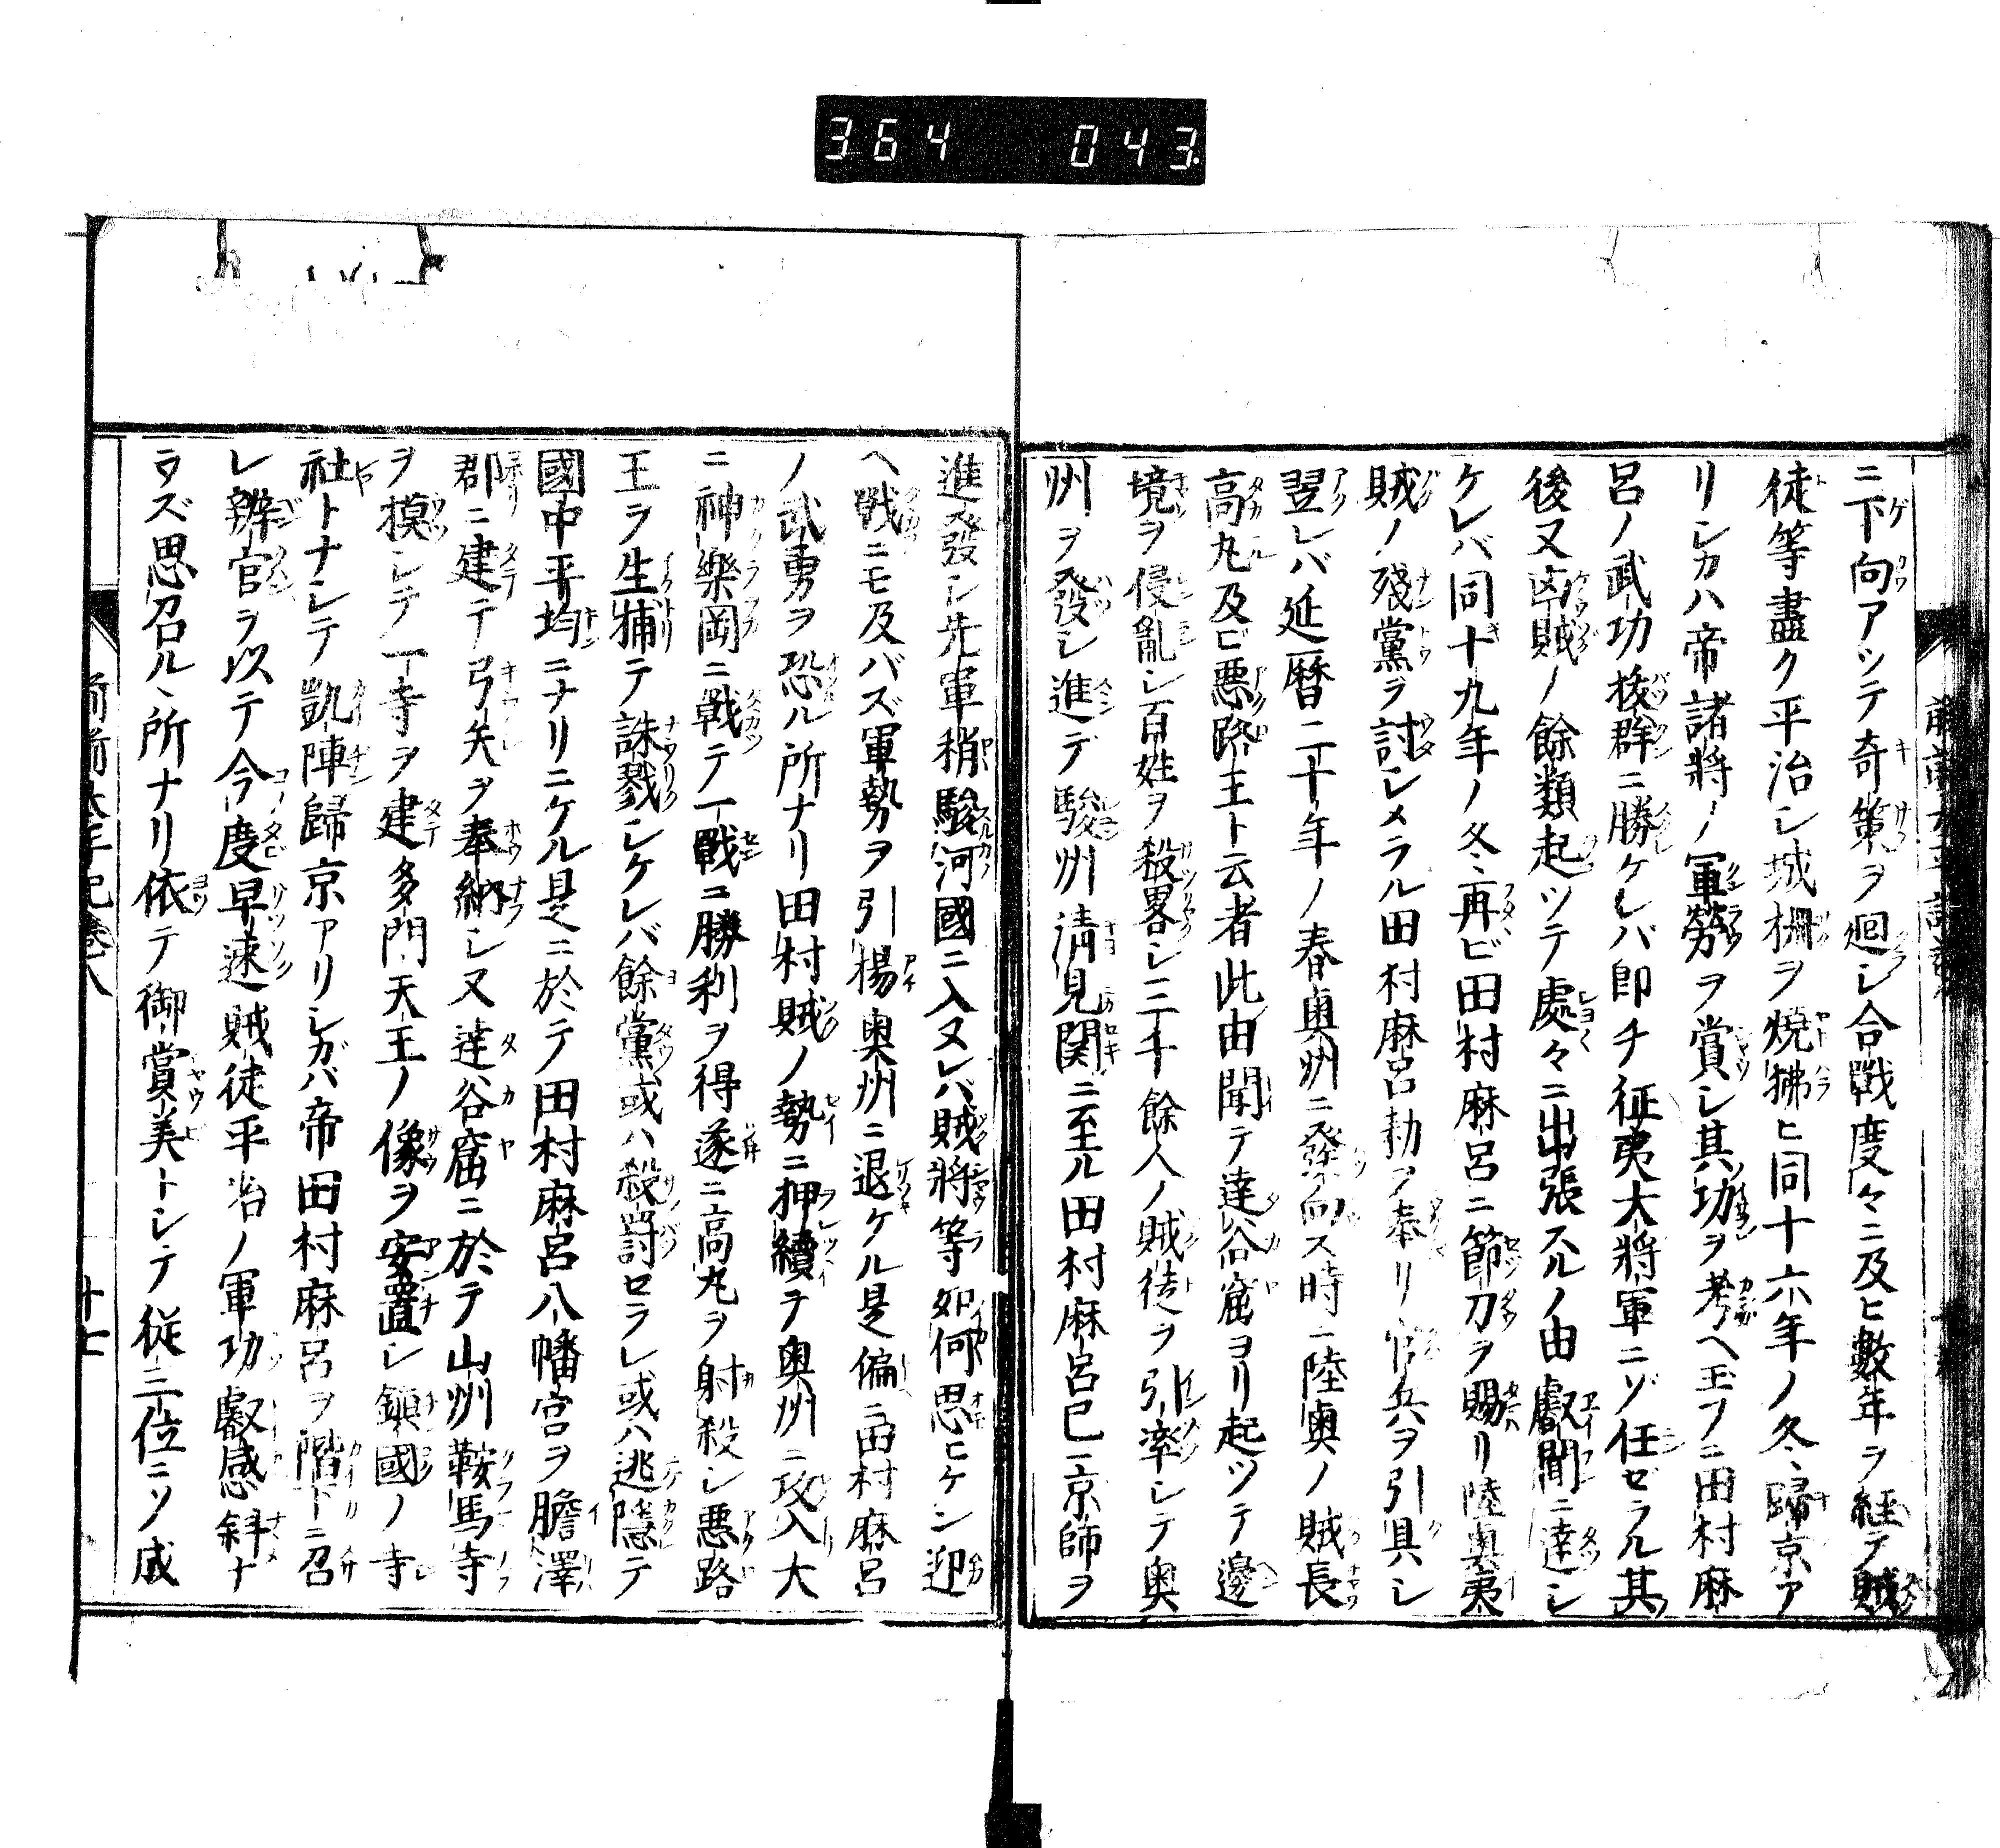 364 043
ニ下向アツテ奇策ヲ廻シ合戰度々ニ及ヒ數年ヲ経テ賊
徒等盡ク平治シ城柵ヲ焼拂ヒ同十六年ノ冬歸京ア
リシカハ帝諸將ノ軍勞ヲ賞シ其功ヲ考ヘ玉フニ田村麻
呂ノ武功抜群ニ勝ケレバ即チ征夷大將軍ニゾ任セラル其
後又凶賊ノ餘類起ツテ處々ニ出張スルノ由叡聞ニ達シ
ケレバ同十九年ノ冬再ビ田村麻呂ニ節刀ヲ賜リ陸奥夷
賊ノ殘黨ヲ討シメラル田村麻呂勅ヲ奉リ官兵ヲ引具シ
翌レバ延暦二十年ノ春奥州ニ發向ス時ニ陸奥ノ賊長
高丸及ビ悪路王ト云者此由聞テ達谷窟ヨリ起ツテ邊
境ヲ侵亂シ百姓ヲ殺畧シ三千餘人ノ賊徒ヲ引率シテ奥
州ヲ發シ進デ駿州清見関ニ至ル田村麻呂已ニ京師ヲ
進發シ先軍稍駿河國ニ入ヌレバ賊將等如何思ヒケン迎
ヘ戰ニモ及バズ軍勢ヲ引揚奥州ニ退ケル是偏ニ田村麻呂
ノ武勇ヲ恐ル所ナリ田村賊ノ勢ニ押續テ奥州ニ攻入大
ニ神樂岡ニ戰テ一戰ニ勝利ヲ得遂ニ高丸ヲ射殺シ悪路
王ヲ生捕テ誅戮シケレバ餘黨或ハ殺罰セラレ或ハ逃隠テ
國中平均ニナリニケル是ニ於テ田村麻呂八幡宮ヲ膽澤
郡ニ建テ弓矢ヲ奉納シ又達谷窟ニ於テ山州鞍馬寺
ヲ摸シテ一寺ヲ建多門天王ノ像ヲ安置シ鎮國ノ寺
社トナシテ凱陣歸京アリシガバ帝田村麻呂ヲ階下ニ召
レ辨官ヲ以テ今度早速賊徒平治ノ軍功叡感斜ナ
ラズ思召ルヽ所ナリ依テ御賞美トシテ従三位ニソ成
前前太平記巻八
十七